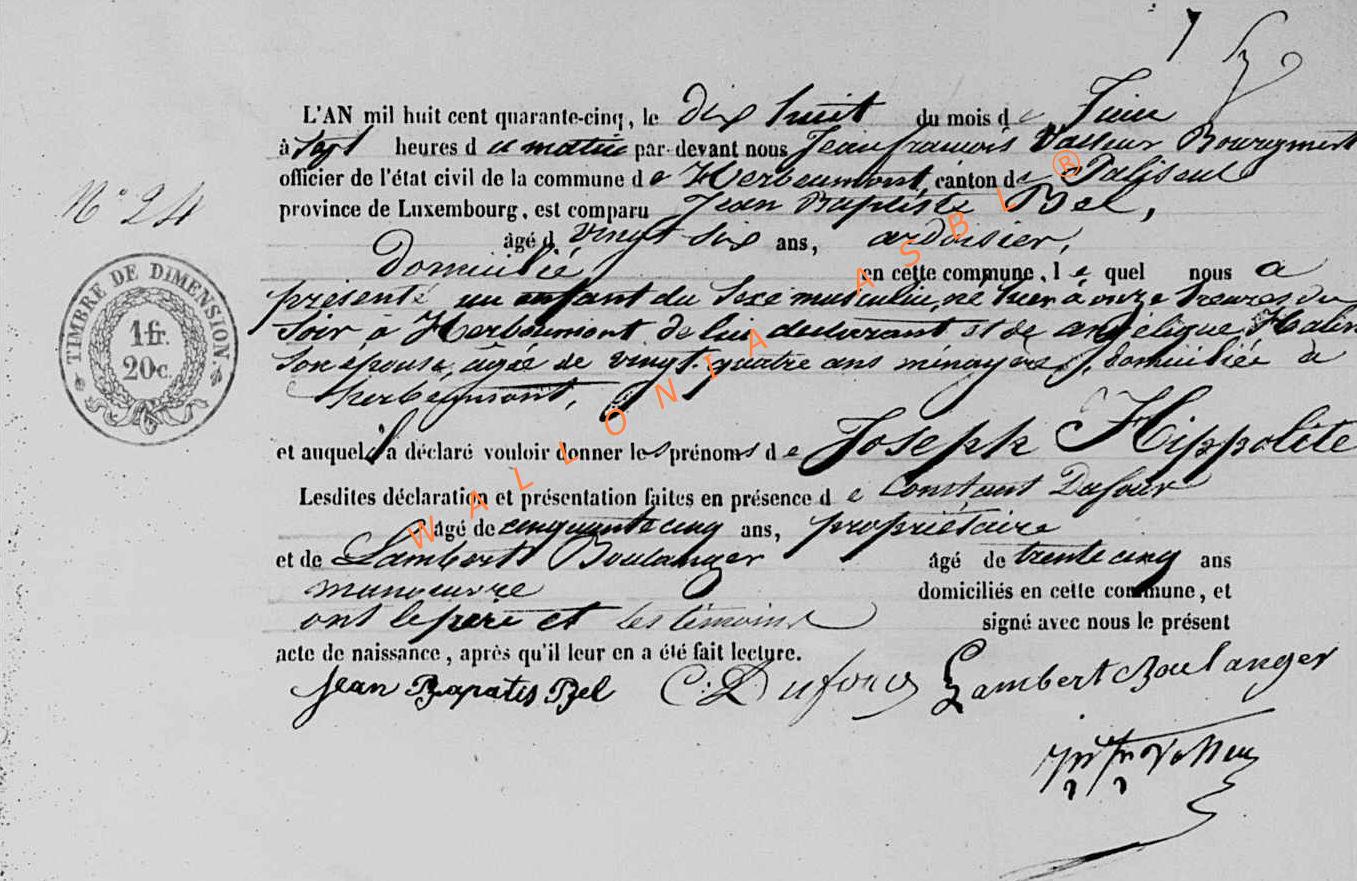 N° 24
TIMBRE DE DIMENSION.
1 fr.
20 c.
L'AN mil huit cent quarante-cinq, le dix huit du mois de Juin
à Sept heures du matin par-devant nous Jean françois Vasseur Bourgmestre
officier de l'état civil de la commune de Herbeumont, canton de Paliseul
province de Luxembourg, est comparu Jean Baptiste Bel,
âgé d vingt six ans, ardoisier,
Domicilié en cette commune, le quel nous a
présenté un enfant du sexe masculin, né hier à onze heures du
Soir à Herbeumont de lui declarant et de angélique Halin
Son épouse, agée de vingt-quatre ans ménagere, domiciliée à
herbeumont,
et auquel il a déclaré vouloir donner les prénoms de Joseph Hippolite
Lesdites déclaration et présentation faites en présence de Constant Dufour
âgé de cinquante cinq ans, propriétaire
et de Lambert Boulanger âgé de trente cinq ans
manoeuvre domiciliés en cette commune, et
ont le père et les témoins signé avec nous le présent
acte de naissance, après qu'il leur en a été fait lecture.
Jean Bapatis Bel C. Dufour Lambert Boulanger
WALLONIA ASBL ®